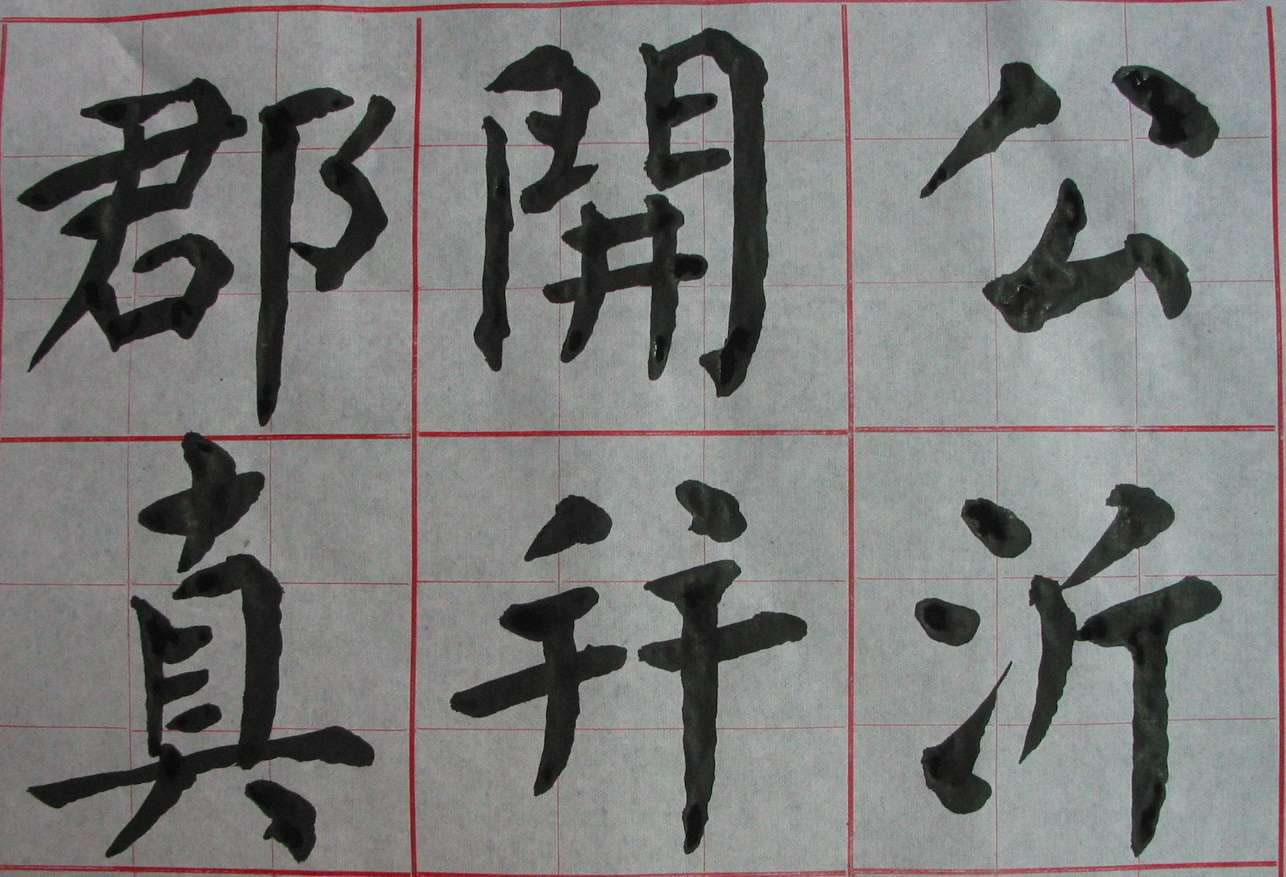 郡開公
真幷沂